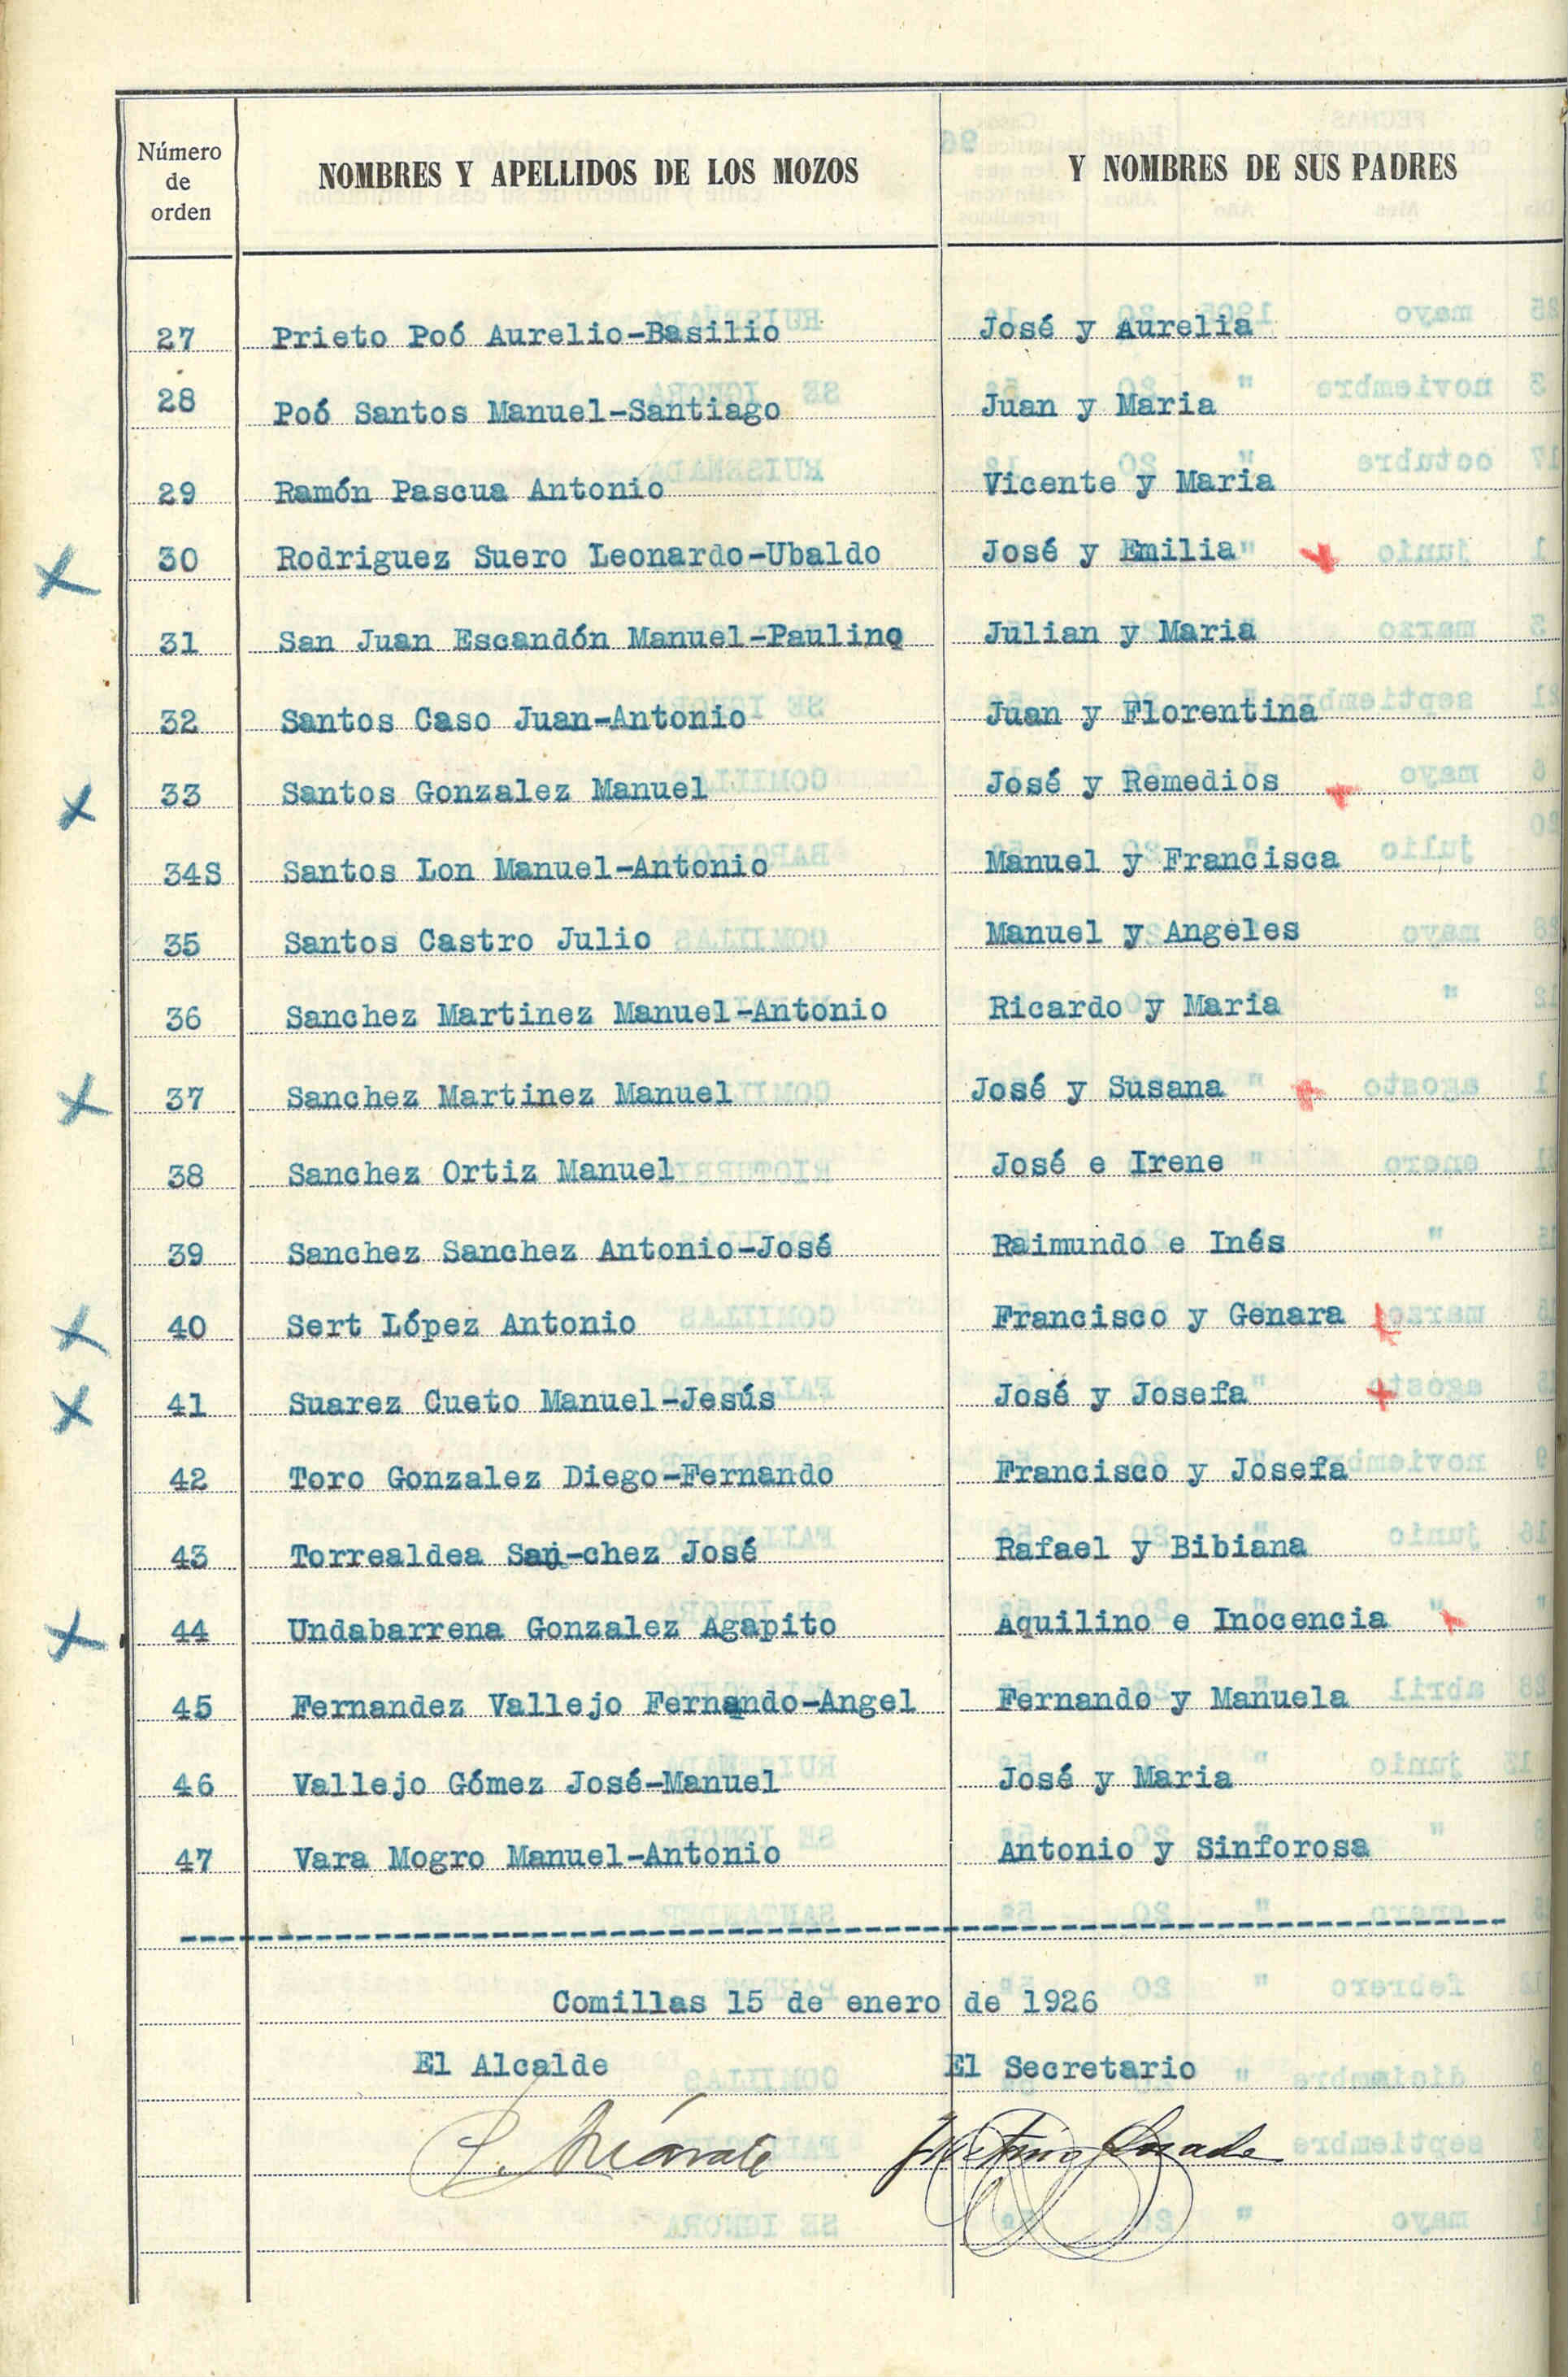 Número de orden
NOMBRES Y APELLIDOS DE LOS MOZOS
Y NOMBRES DE SUS PADRES
27 Prieto Poó Aurelio-Basilio José y Aurelia
28 Poó Santos Manuel-Santiago Juan y Maria
29 Ramón Pascua Antonio Vicente y Maria
30 Rodriguez Suero Leonardo-Ubaldo José y Emilia
31 San Juan Escandón Manuel-Paulino Julian y Maria
32 Santos Caso Juan-Antonio Juan y Florentina
33 Santos Gonzalez Manuel José y Remedios
34S Santos Lon Manuel-Antonio Manuel y Francisca
35 Santos Castro Julio Manuel y Angeles
36 Sanchez Martinez Manuel-Antonio Ricardo y Maria
37 Sanchez Martinez Manuel José y Susana
38 Sanchez Ortiz Manuel José e Irene
39 Sanchez Sanchez Antonio-José Raimundo e Inés
40 Sert López Antonio Francisco y Genara
41 Suarez Cueto Manuel-Jesús José y Josefa
42 Toro Gonzalez Diego-Fernando Francisco y Josefa
43 Torrealdea San-chez José Rafael y Bibiana
44 Undabarrena Gonzalez Agapito Aquilino e Inocencia
45 Fernandez Vallejo Fernando-Angel Fernando y Manuela
46 Vallejo Gómez José-Manuel José y Maria
47 Vara Mogro Manuel-Antonio Antonio y Sinforosa
Comillas 15 de enero de 1926
El Alcalde El Secretario